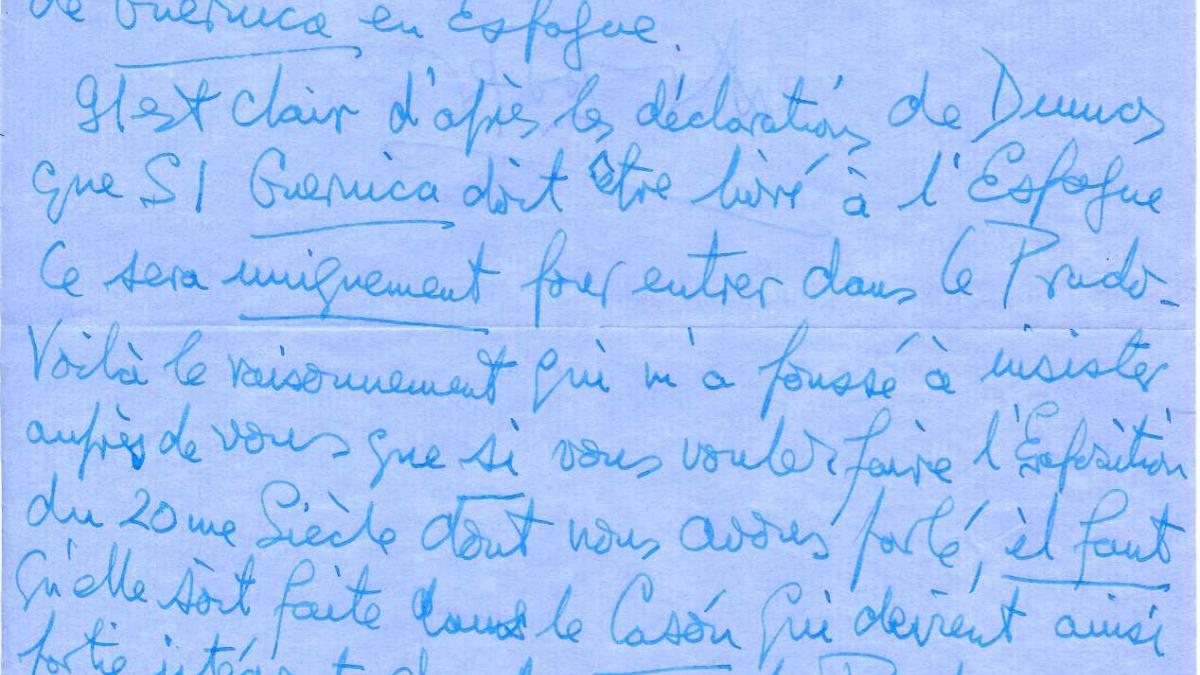 de Guernica en Espagne.
Il est clair d'après les déclarations de Dumas
que SI Guernica doit être livré à l'Espagne
ce sera uniquement pour entrer dans le Prado.
Voilà le raisonnement qui m'a poussé à insister
auprès de vous que si vous voulez faire l'Exposition
du 20me Siècle dont nous avons parlé, il faut
qu'elle soit faite dans le Casón qui devient ainsi
partie